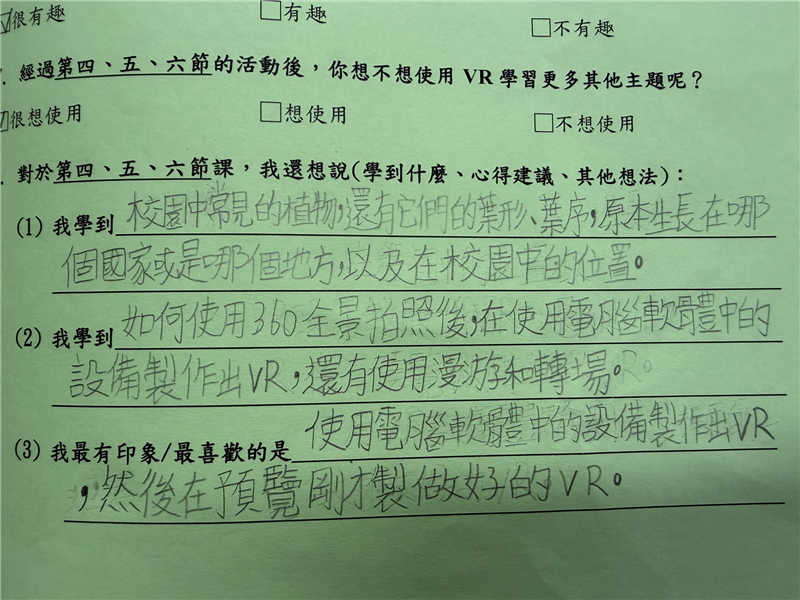 ☑很有趣 □有趣 □不有趣
. 經過第四、五、六節的活動後，你想不想使用 VR 學習更多其他主題呢？
☑很想使用 □想使用 □不想使用
. 對於第四、五、六節課，我還想說(學到什麼、心得建議、其他想法)：
(1) 我學到校園中常見的植物，還有它們的葉形、葉序，原本生長在哪
個國家或是哪個地方，以及在校園中的位置。
(2) 我學到如何使用360全景拍照後，在使用電腦軟體中的
設備製作出VR，還有使用漫游和轉場。
(3) 我最有印象/最喜歡的是使用電腦軟體中的設備製作出VR
，然後在預覽剛才製做好的VR。